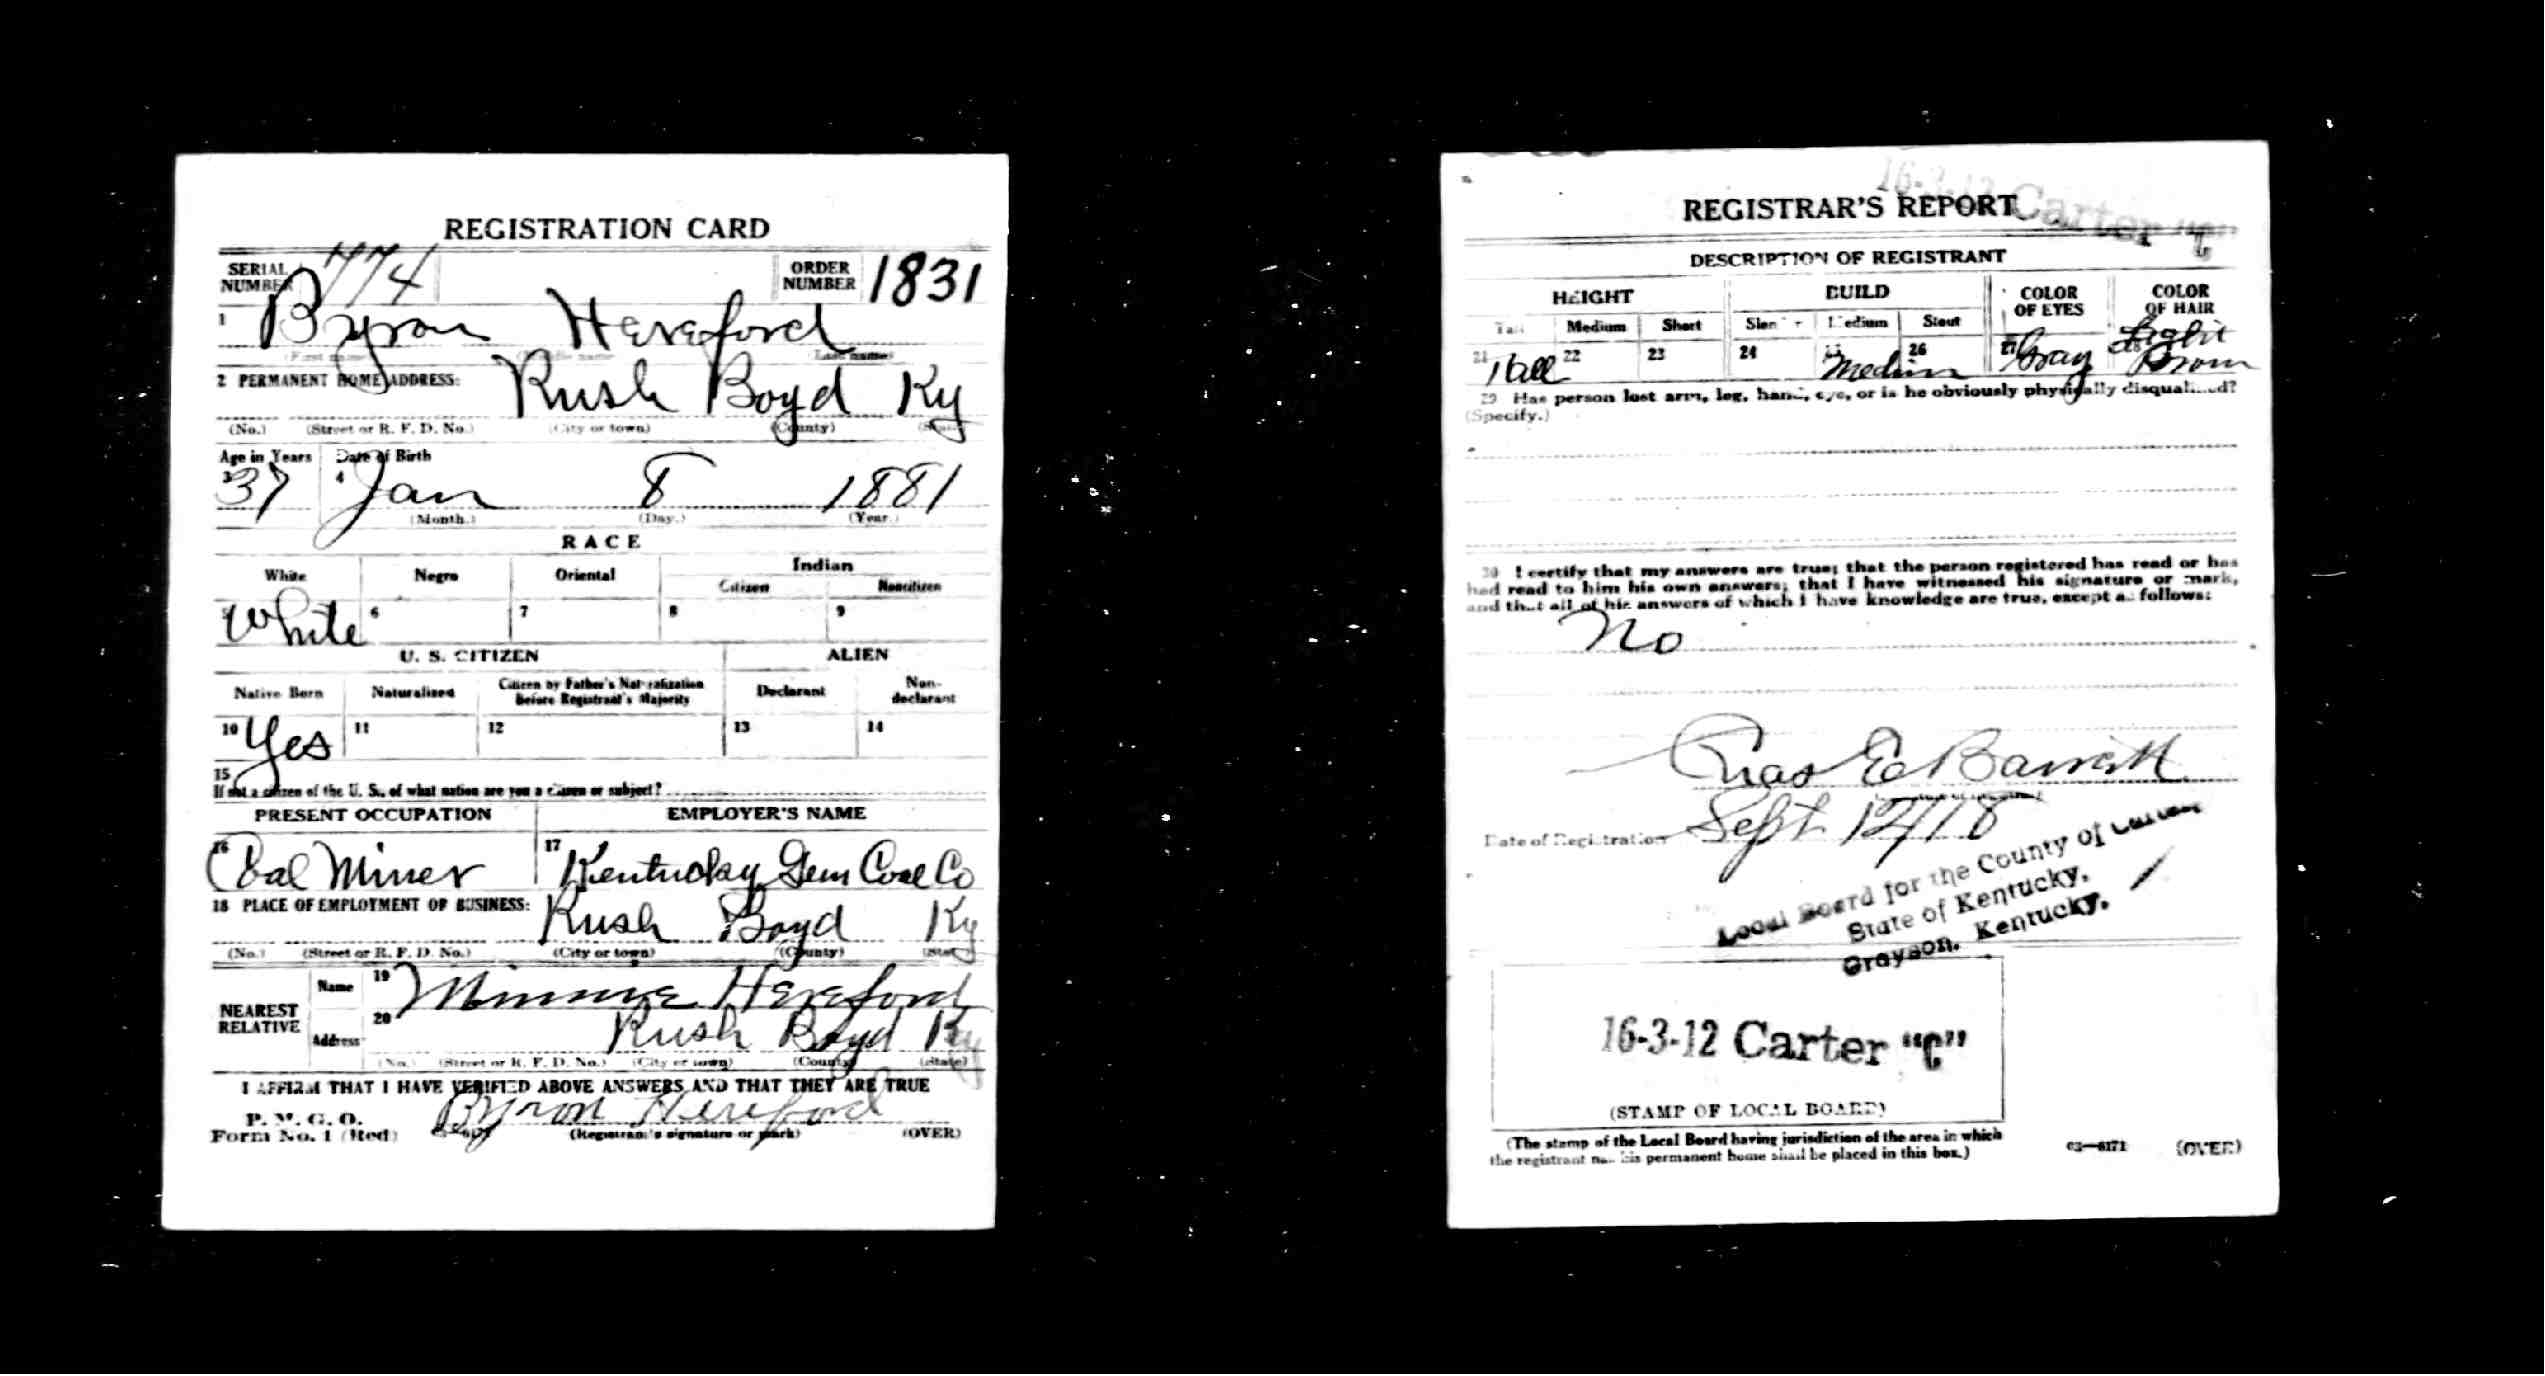 REGISTRATION CARD
SERIAL NUMBER 774 ORDER NUMBER 1831
1 Byron Hereford
(First name) (Middle name) (Last name)
2 PERMANENT HOME ADDRESS: Rush Boyd Ky
(No.) (Street or R. F. D. No.) (City or town) (County) (State)
Age in Years Date of Birth
3 37 4 Jan 8 1881
(Month.) (Day.) (Year.)
RACE
White Negro Oriental Indian
Citizen Noncitizen
White 6 7 8 9
U. S. CITIZEN ALIEN
Native Born Naturalized Citizen by Father's Naturalization Before Registrant's Majority Declarant Non-declarant
10 Yes 11 12 13 14
15
If not a citizen of the U. S., of what nation are you a citizen or subject?
PRESENT OCCUPATION EMPLOYER'S NAME
16 Coal Miner 17 Kentucky Gem Coal Co
18 PLACE OF EMPLOYMENT OR BUSINESS: Rush Boyd Ky
(No.) (Street or R. F. D. No.) (City or town) (County) (State)
NEAREST RELATIVE Name 19 Minnie Hereford
Address 20 Rush Boyd Ky
(No.) (Street or R. F. D. No.) (City or town) (County) (State)
I AFFIRM THAT I HAVE VERIFIED ABOVE ANSWERS AND THAT THEY ARE TRUE
P. M. G. O.
Form No. 1 (Red) Byron Hereford
(Registrant's signature or mark) (OVER)
16-3-12 Carter "C"
REGISTRAR'S REPORT
DESCRIPTION OF REGISTRANT
HEIGHT BUILD COLOR OF EYES COLOR OF HAIR
Tall Medium Short Slender Medium Stout
21 Tall 22 23 24 Medium 26 27 Gray Light Brown
29 Has person lost arm, leg, hand, eye, or is he obviously physically disqualified?
(Specify.)
30 I certify that my answers are true; that the person registered has read or has
had read to him his own answers; that I have witnessed his signature or mark,
and that all of his answers of which I have knowledge are true, except as follows:
No
Chas E Barrett
Date of Registration Sept 12/18
Local Board for the County of Carter
State of Kentucky,
Grayson, Kentucky.
16-3-12 Carter "C"
(STAMP OF LOCAL BOARD)
(The stamp of the Local Board having jurisdiction of the area in which
the registrant has his permanent home shall be placed in this box.)
03—6171 (OVER)